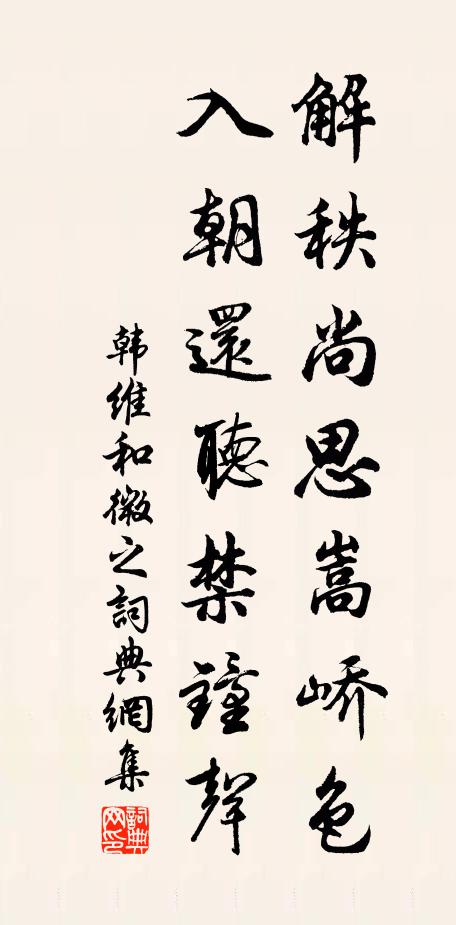 解秩尚思嵩峤色
入朝還聽禁鐘聲
韩維和微之詞典網集
詞典網印